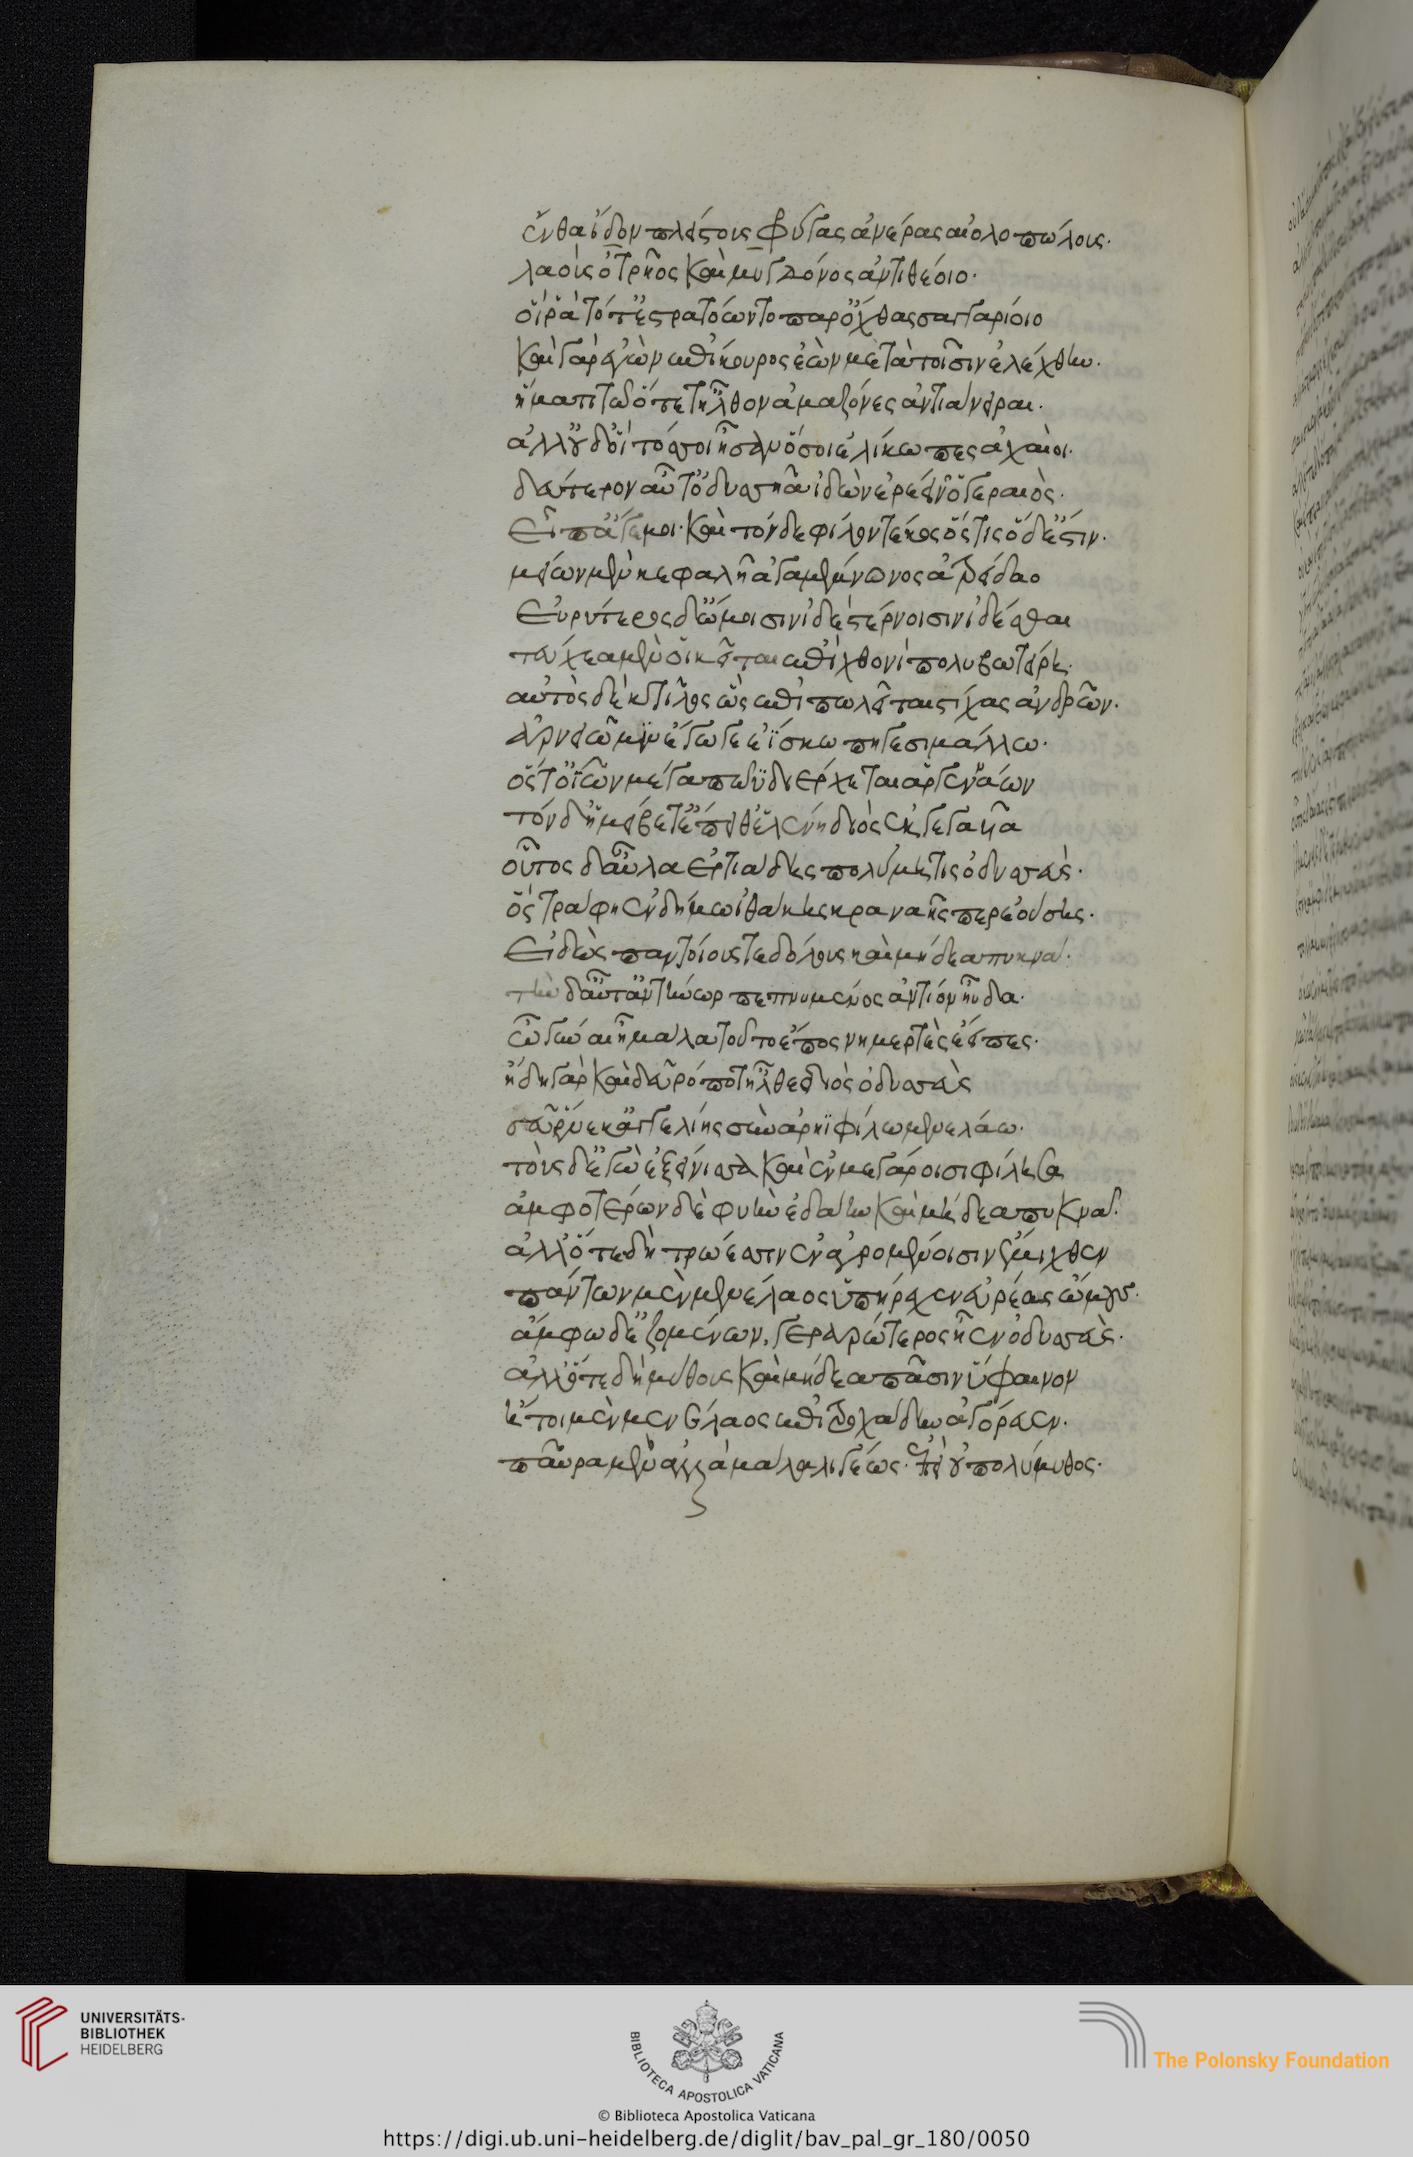 ἔνθα ἴδον πλείστους φρύγας ἀνέρας αἰολοπώλους.
λαοὺς ὀτρῆος καὶ μυγδόνος ἀντιθέοιο.
οἵ ῥα τότ' ἐστρατόωντο παρ' ὄχθας σαγγαρίοιο
καὶ γὰρ ἐγὼν ἐπίκουρος ἐὼν μετὰ τοῖσιν ἐλέχθην.
ἤματι τῶ ὅτε τ' ἦλθον ἀμαζόνες ἀντιάνειραι.
ἀλλ' οὐδ' οἳ τόσοι ἦσαν ὅσοι ἑλίκωπες ἀχαιοί.
δεύτερον αὖτ' ὀδυσῆα ἰδὼν ἐρέειν' ὁ γεραιὸς.
εἴπ' ἄγε μοι. καὶ τόνδε φίλον τέκος ὅστις ὅδ' ἐστίν.
μείων μὲν κεφαλῆ ἀγαμέμνονος ἀτρείδαο
εὐρύτερος δ' ὤμοισιν ἰδὲ στέρνοισιν ἰδέσθαι
τεύχεα μέν οἱ κεῖται ἐπὶ χθονὶ πολυβωτείρη.
αὐτὸς δὲ κτίλος ὣς ἐπιπωλεῖται στίχας ἀνδρῶν.
ἀρνειῶ μιν ἔγωγε ἐΐσκω πηγεσιμάλλω.
ὅς τ' ὀΐων μέγα πῶϋ διέρχεται ἀργεννάων
τόνδ' ἠμείβετ' ἔπειθ' ἑλένη διὸς ἐκγεγαυῖα
οὗτος δ' αὖ λαερτιάδης πολύμητις ὀδυσσεὺς.
ὃς τράφη ἐν δήμω ἰθάκης κραναῆς περ ἐούσης.
εἰδὼς παντοίους τε δόλους καὶ μήδεα πυκνά.
τὴν δ' αὖτ' ἀντήνωρ πεπνυμένος ἀντίον ηὔδα.
ὦ γύναι ἦ μάλα τοῦτο ἔπος νημερτὲς ἔειπες.
ἤδη γὰρ καὶ δεῦρό ποτ' ἤλθε δῖος ὀδυσσεὺς
σεῦ ἕνεκ' ἀγγελίης σὺν ἀρηϊφίλω μενελάω.
τοὺς δ' ἐγὼ ἐξείνισσα καὶ ἐν μεγάροισι φίλησα
ἀμφοτέρων δὲ φυὴν ἐδάην καὶ μήδεα πυκνά.
ἀλλ' ὅτε δὴ τρώεσσιν ἐν ἀγρομένοισιν ἔμιχθεν
πάντων μὲν μενέλαος ὑπείρεχεν εὐρέας ὤμους.
ἄμφω δ' ἑζομένων, γεραρώτερος ἦεν ὀδυσσεὺς.
ἀλλ' ὅτε δὴ μύθους καὶ μήδεα πᾶσιν ὕφαινον
ἤτοι μὲν μενέλαος ἐπιτροχάδην ἀγόρευεν.
παῦρα μὲν ἀλλὰ μάλα λιγέως. ἐπεὶ οὐ πολύμυθος.
UNIVERSITÄTS-
BIBLIOTHEK
HEIDELBERG
BIBLIOTECA APOSTOLICA VATICANA
The Polonsky Foundation
© Biblioteca Apostolica Vaticana
https://digi.ub.uni-heidelberg.de/diglit/bav_pal_gr_180/0050